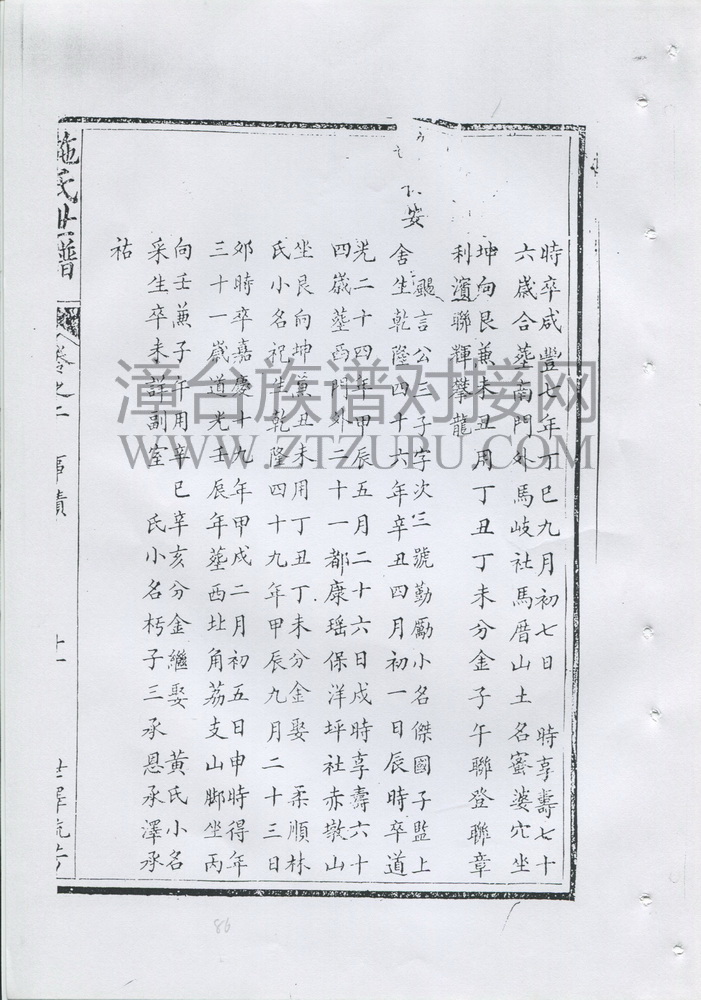 時卒咸豐七年丁巳九月初七日 時享壽七十
六歲合塟南門外馬岐社馬厝山土名蜜婆穴坐
坤向艮兼未丑用丁丑丁未分金子午聯登聯章
利濱聯輝攀龍
安
颺言公三子字次三號勤勵小名傑國子監上
舍生乾隆四十六年辛丑四月初一日辰時卒道
光二十四年甲辰五月二十六日戌時享壽六十
四歲塟西門外二十一都康瑤保洋坪社赤墩山
坐艮向坤兼丑未用丁丑丁未分金娶 柔順林
氏小名祀生乾隆四十九年甲辰九月二十三日
卯時卒嘉慶十九年甲戌二月初五日申時得年
三十一歲道光壬辰年塟西北角荔支山脚坐丙
向壬兼子午用辛巳辛亥分金繼娶 黃氏小名
采生卒未詳副室 氏小名杇子三承恩承澤承
祜
施氏世譜 卷之二 事蹟 十一 世澤流芳
漳台族谱对接网
WWW.ZTZUPU.COM
86